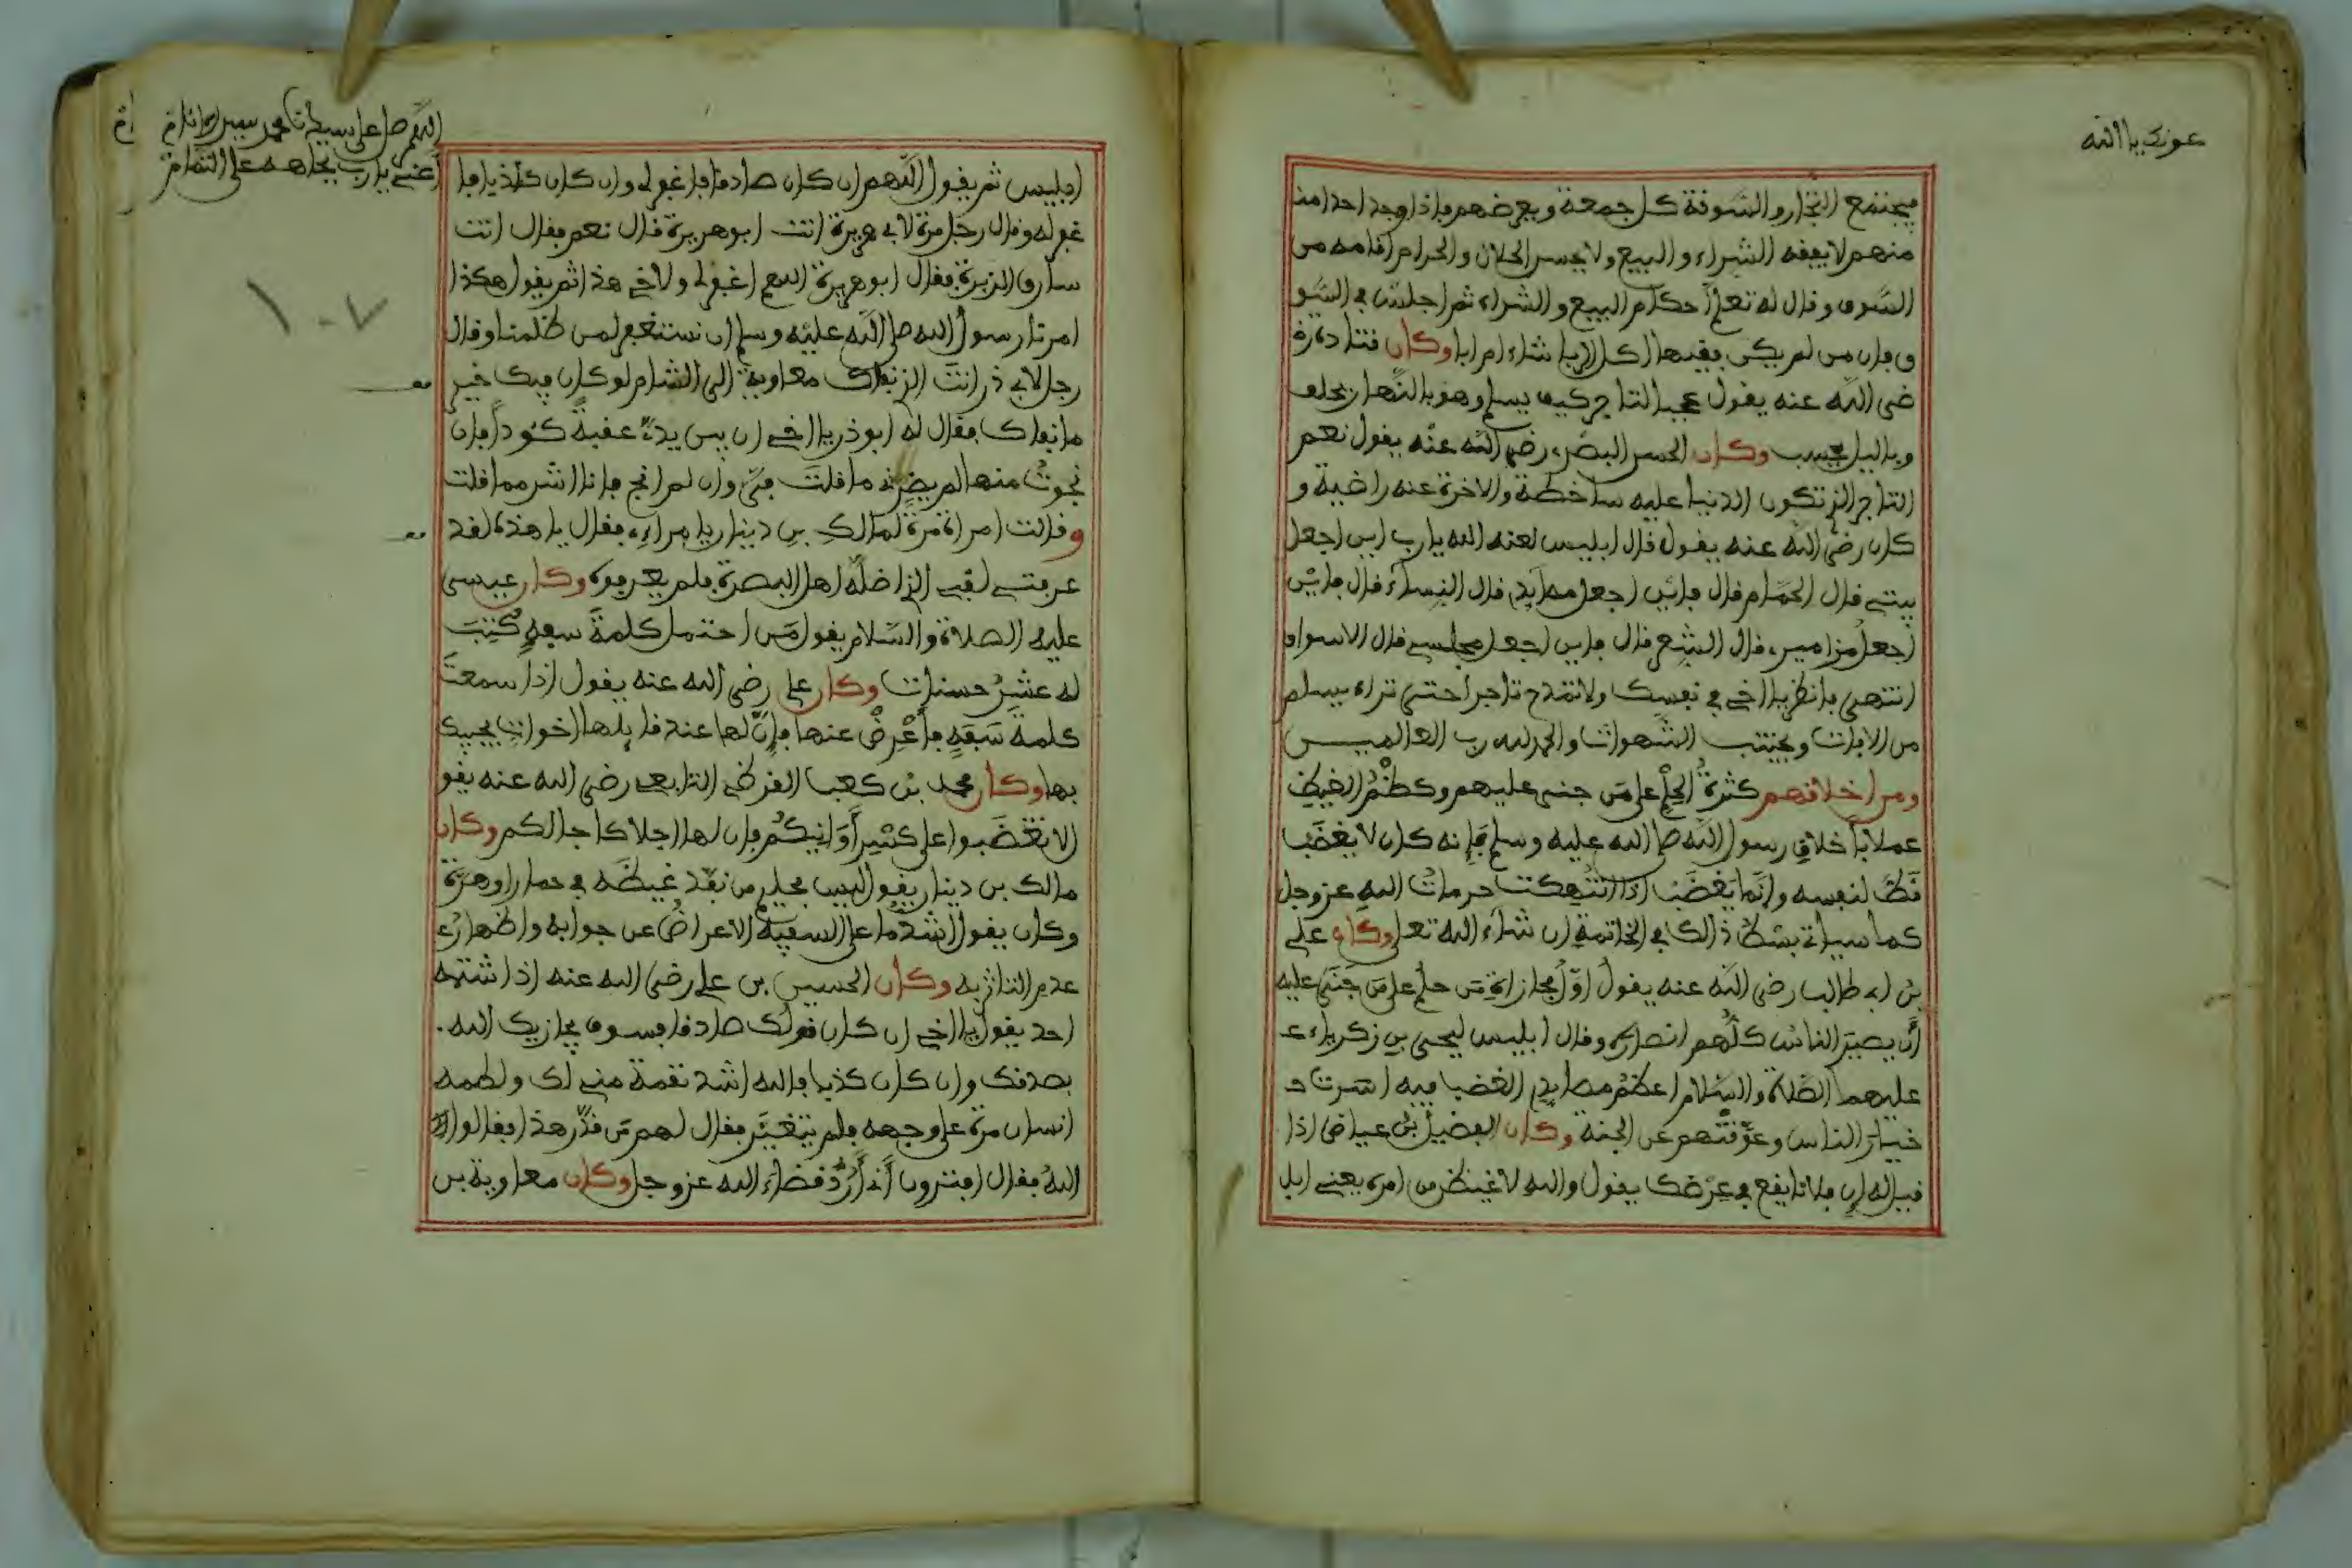 عونك يا الله
فيجتمع التجار والسوقة كل جمعة ويعرضهم فإذا وجد احدا من
منهم لا يفقه الشراء والبيع ولا يحسن الحلال والحرام اقامه من
السوق وقال له تعلم احكام البيع والشراء ثم اجلس في السو
ق فإن من لم يكن فقيها اكل الربا شاء ام ابا وكان قتادة ر
ضى الله عنه يقول عجبا للتاجر كيف يسلم وهو بالنهار يحلف
وباليل يحسب وكان الحسن البصرى رضى الله عنه يقول نعم
التاجر الذ تكون الدنيا عليه ساخطة والاخرة عنه راضية و
كان رضى الله عنه يقول قال ابليس لعنه الله يارب اين اجعل
بيتي قال الحمام قال فاين اجعل مصايدى قال النساء قال فاين
اجعل مزاميرى قال الشعر قال فاين اجعل مجلسي قال الاسواق
انتهى فانظر يا اخي في نفسك ولا تمدح تاجرا حتى تراه يسلم
من الافات ويجتنب الشهوات والحمد لله رب العالميـــن
ومن اخلاقهم كثرة الحلم على من جنى عليهم وكظم الغيظ
عملا بأخلاق رسول الله صلى الله عليه وسلم فإنه كان لا يغضب
قط لنفسه وإنما يغضب اذا انتهكت حرمات الله عز وجل
كما سيأتي بسط ذالك في الخاتمة ان شاء الله تعلى وكان علي
بن ابى طالب رضى الله عنه يقول اول مجازاة من حلم على من جنى عليه
أن يصير الناس كلهم انصاره وقال ابليس ليحيى بن زكرياء ع
عليهما الصلاة والسلام اعظم مصايدى الغضب فيه اسرت
خيار الناس وعوقتهم عن الجنة وكان الفضيل بن عياض اذا
قيل له ان فلانا يقع في عرضك يقول والله لاغيظن من امره يعني ابل
اللهم صل على سيدنا محمد
أغثني يارب بجاهه على التمام
ابليس ثم يقول اللهم ان كان صادقا فاغفر لى وان كان كاذبا فا
غفر له وقال رجل مرة لابي هريرة انت ابو هريرة قال نعم فقال انت
سارق الذريرة فقال ابو هريرة اللهم اغفر لى ولاخي هذا ثم يقول هكذا
امرنا رسول الله صلى الله عليه وسلم ان نستغفر لمن ظلمنا وقال
رجل لابي ذر انت الذ نفاك معاوية الى الشام لو كان فيك خير
ما نفاك فقال له ابو ذر يا اخي ان بين يدى عقبة كئودا فإن
نجوت منها لم يضرني ما قلت في وان لم انج فانا اشر مما قلت
وقالت امراة مرة لمالك بن دينار يا مراءى فقال يا هذه لقد
عرفتي لقبي الذ اضله اهل البصرة فلم يعرفوه وكان عيسى
عليه الصلاة والسلام يقول من احتمل كلمة سفه كتبت
له عشر حسنات وكان علي رضى الله عنه يقول اذا سمعت
كلمة سفه فأعرض عنها فإن لها عند قايلها اخوات يجيبك
بها وكان محمد بن كعب القرظي التابعي رضى الله عنه يقو
لا تغضبوا على كسر أوانيكم فإن لها اجلا كاجالكم وكان
مالك بن دينار يقول ليس بحليم من نفذ غيظه في حمار او هرة
وكان يقول اشد ما على السفيه الاعراض عن جوابه واظهار ع
عدم التاثر به وكان الحسين بن علي رضى الله عنه اذا شتمه
احد يقول يا اخي ان كان قولك صادقا فسوف يجازيك الله
بصدقك وان كان كذبا فالله اشد نقمة مني لك ولطمه
انسان مرة على وجهه فلم يتغير فقال لهم من قدر هذا فقالوا
الله فقال افترون أني أرد قضاء الله عز وجل وكان معاوية بن
١٠٧